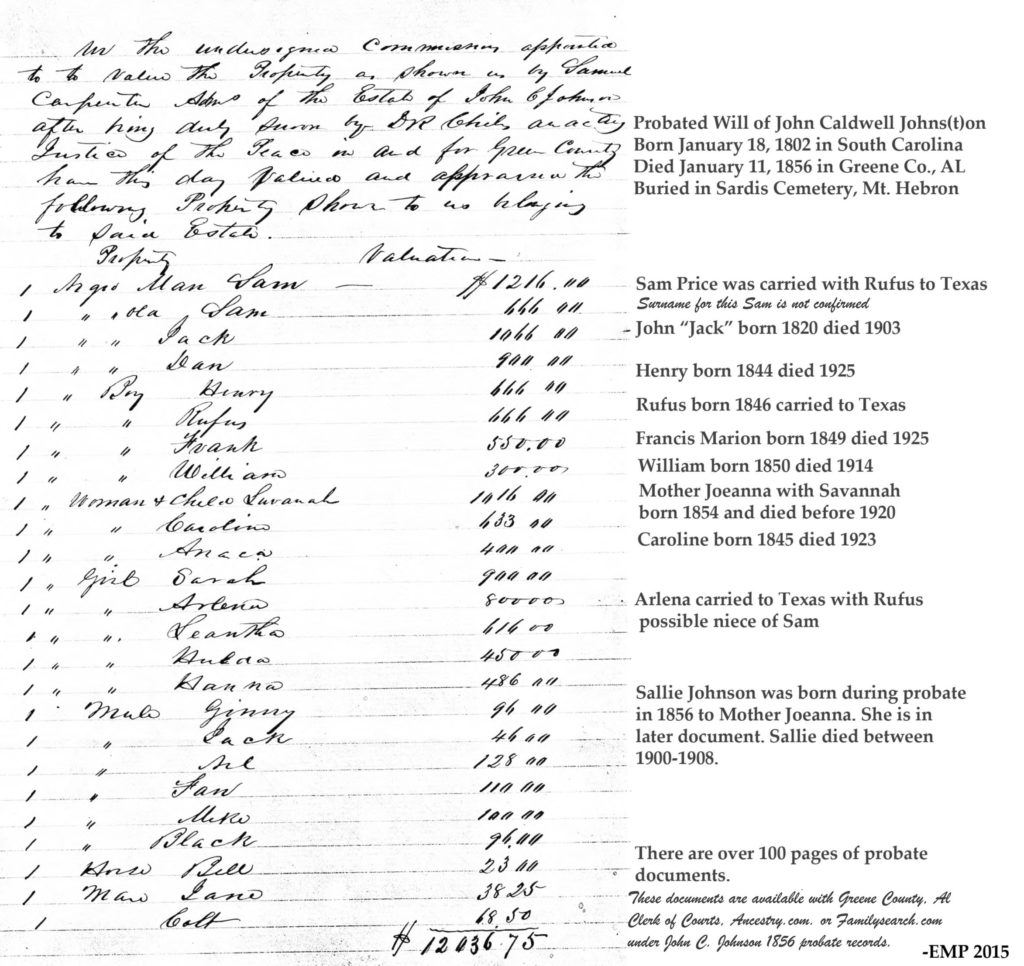 We the undersigned Commissioners appointed
to to value the Property as shown us by Samuel
Carpenter Adms of the Estate of John C Johnson
after being duly sworn by DR Childs an acting
Justice of the Peace in and for Green County
have this day Valued and appraised the
following Property Shown to us belonging
to Said Estate.
Property Valuation
1 Negro Man Sam — $1216.00
1 " " old Sam 666 00
1 " " Jack 1066 00
1 " " Dan 900 00
1 " Boy Henry 666 00
1 " " Rufus 666 00
1 " " Frank 550.00
1 " " William 300.00
1 " Woman & Child Savanah 1016 00
1 " " Caroline 633 00
1 " " Anaca 400 00
1 " Girl Sarah 900 00
1 " " Arlena 800 00
1 " " Leantha 616 00
1 " " Hulda 450 00
1 " " Hanna 486 00
1 Mule Ginny 96 00
1 " Jack 46 00
1 " 128 00
1 " Fan 110 00
1 " Mike 100 00
1 " Black 96.00
1 Horse Bill 23 00
1 Mare Jane 38 25
1 Colt 68.50
$12036.75
Probated Will of John Caldwell Johns(t)on
Born January 18, 1802 in South Carolina
Died January 11, 1856 in Greene Co., AL
Buried in Sardis Cemetery, Mt. Hebron
Sam Price was carried with Rufus to Texas
Surname for this Sam is not confirmed
- John “Jack” born 1820 died 1903
Henry born 1844 died 1925
Rufus born 1846 carried to Texas
Francis Marion born 1849 died 1925
William born 1850 died 1914
Mother Joeanna with Savannah
born 1854 and died before 1920
Caroline born 1845 died 1923
Arlena carried to Texas with Rufus
possible niece of Sam
Sallie Johnson was born during probate
in 1856 to Mother Joeanna. She is in
later document. Sallie died between
1900-1908.
There are over 100 pages of probate
documents.
These documents are available with Greene County, Al
Clerk of Courts, Ancestry.com. or Familysearch.com
under John C. Johnson 1856 probate records.
-EMP 2015